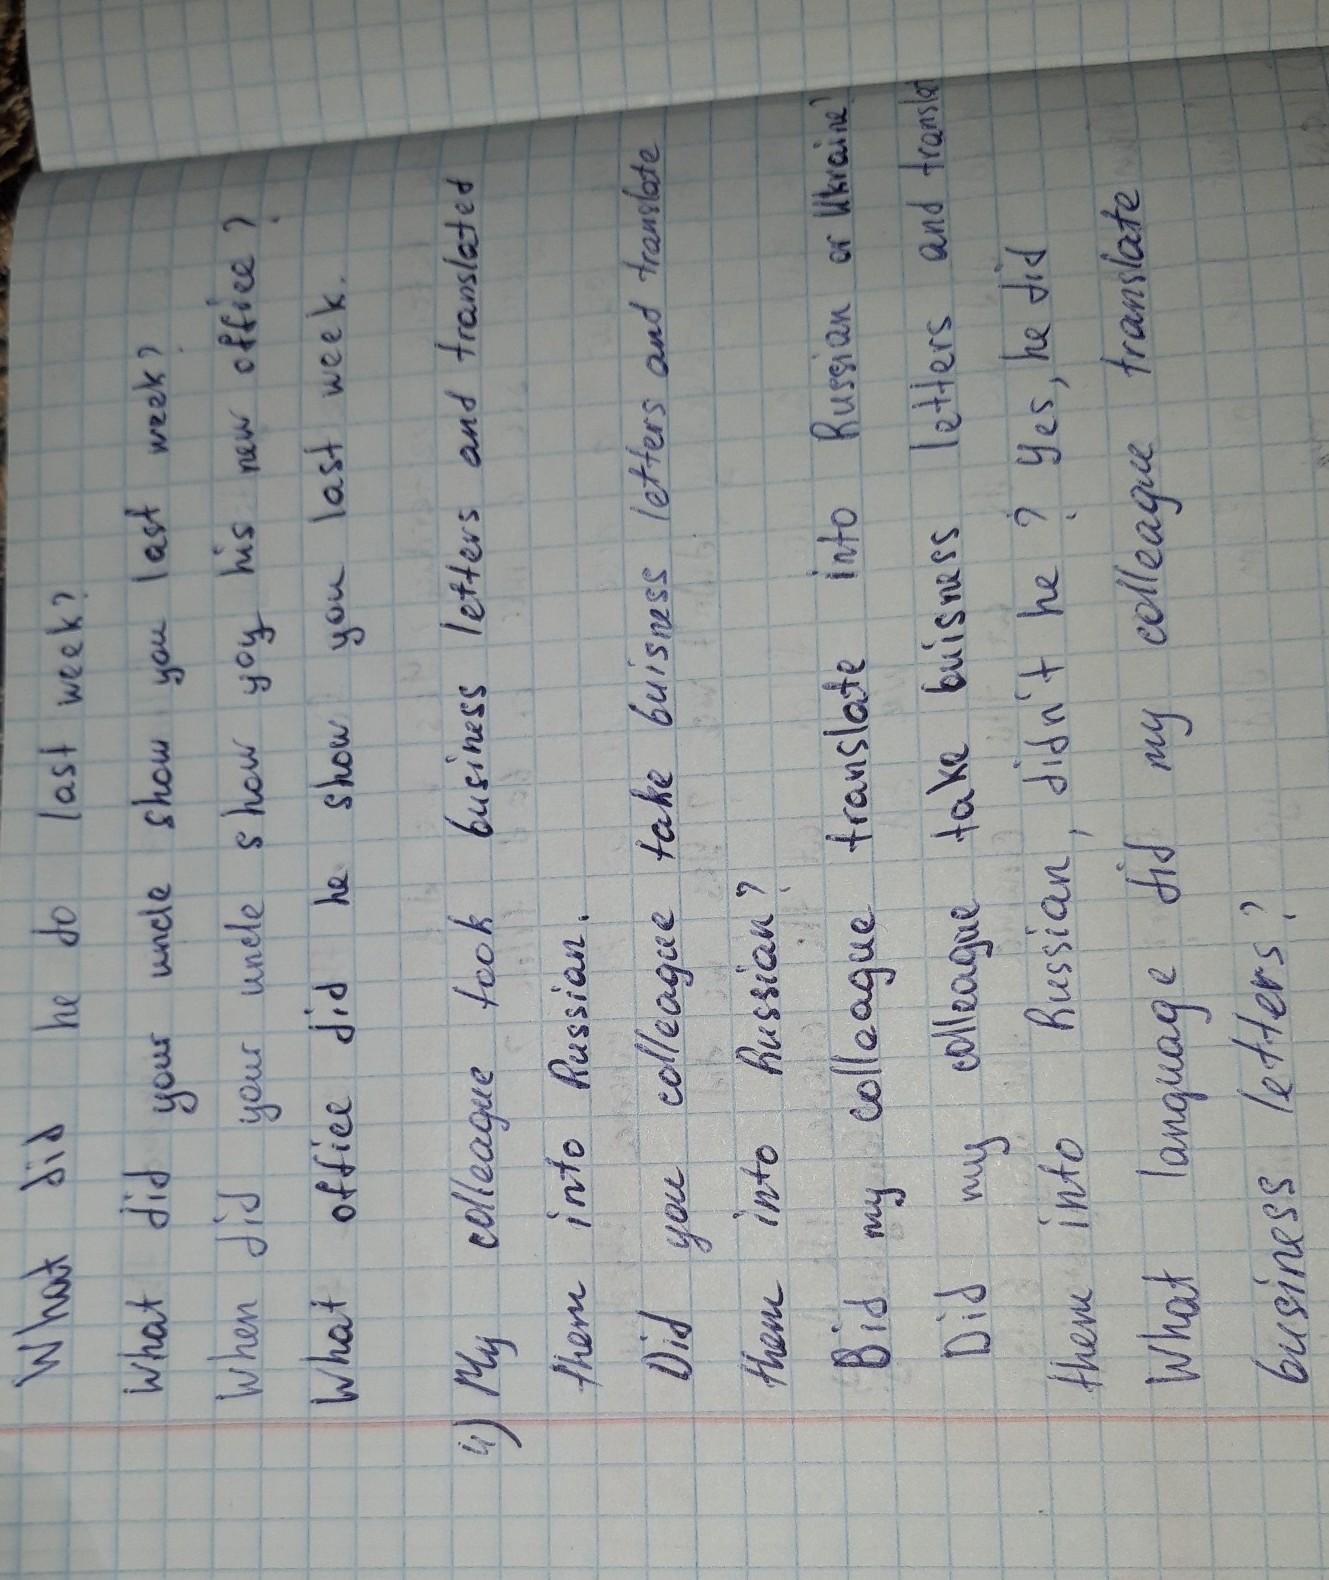 What did he do last week?
What did your uncle show you last week?
When did your uncle show yoy his new office?
What office did he show you last week.
4) My colleague took business letters and translated
them into Russian.
Did you colleague take buisness letters and translate
them into Russian?
Bid my colleague translate into Russian or Ukraine?
Did my colleague take buisness letters and translat
them into Russian, didn't he? Yes, he did
What language did my colleague translate
business letters?